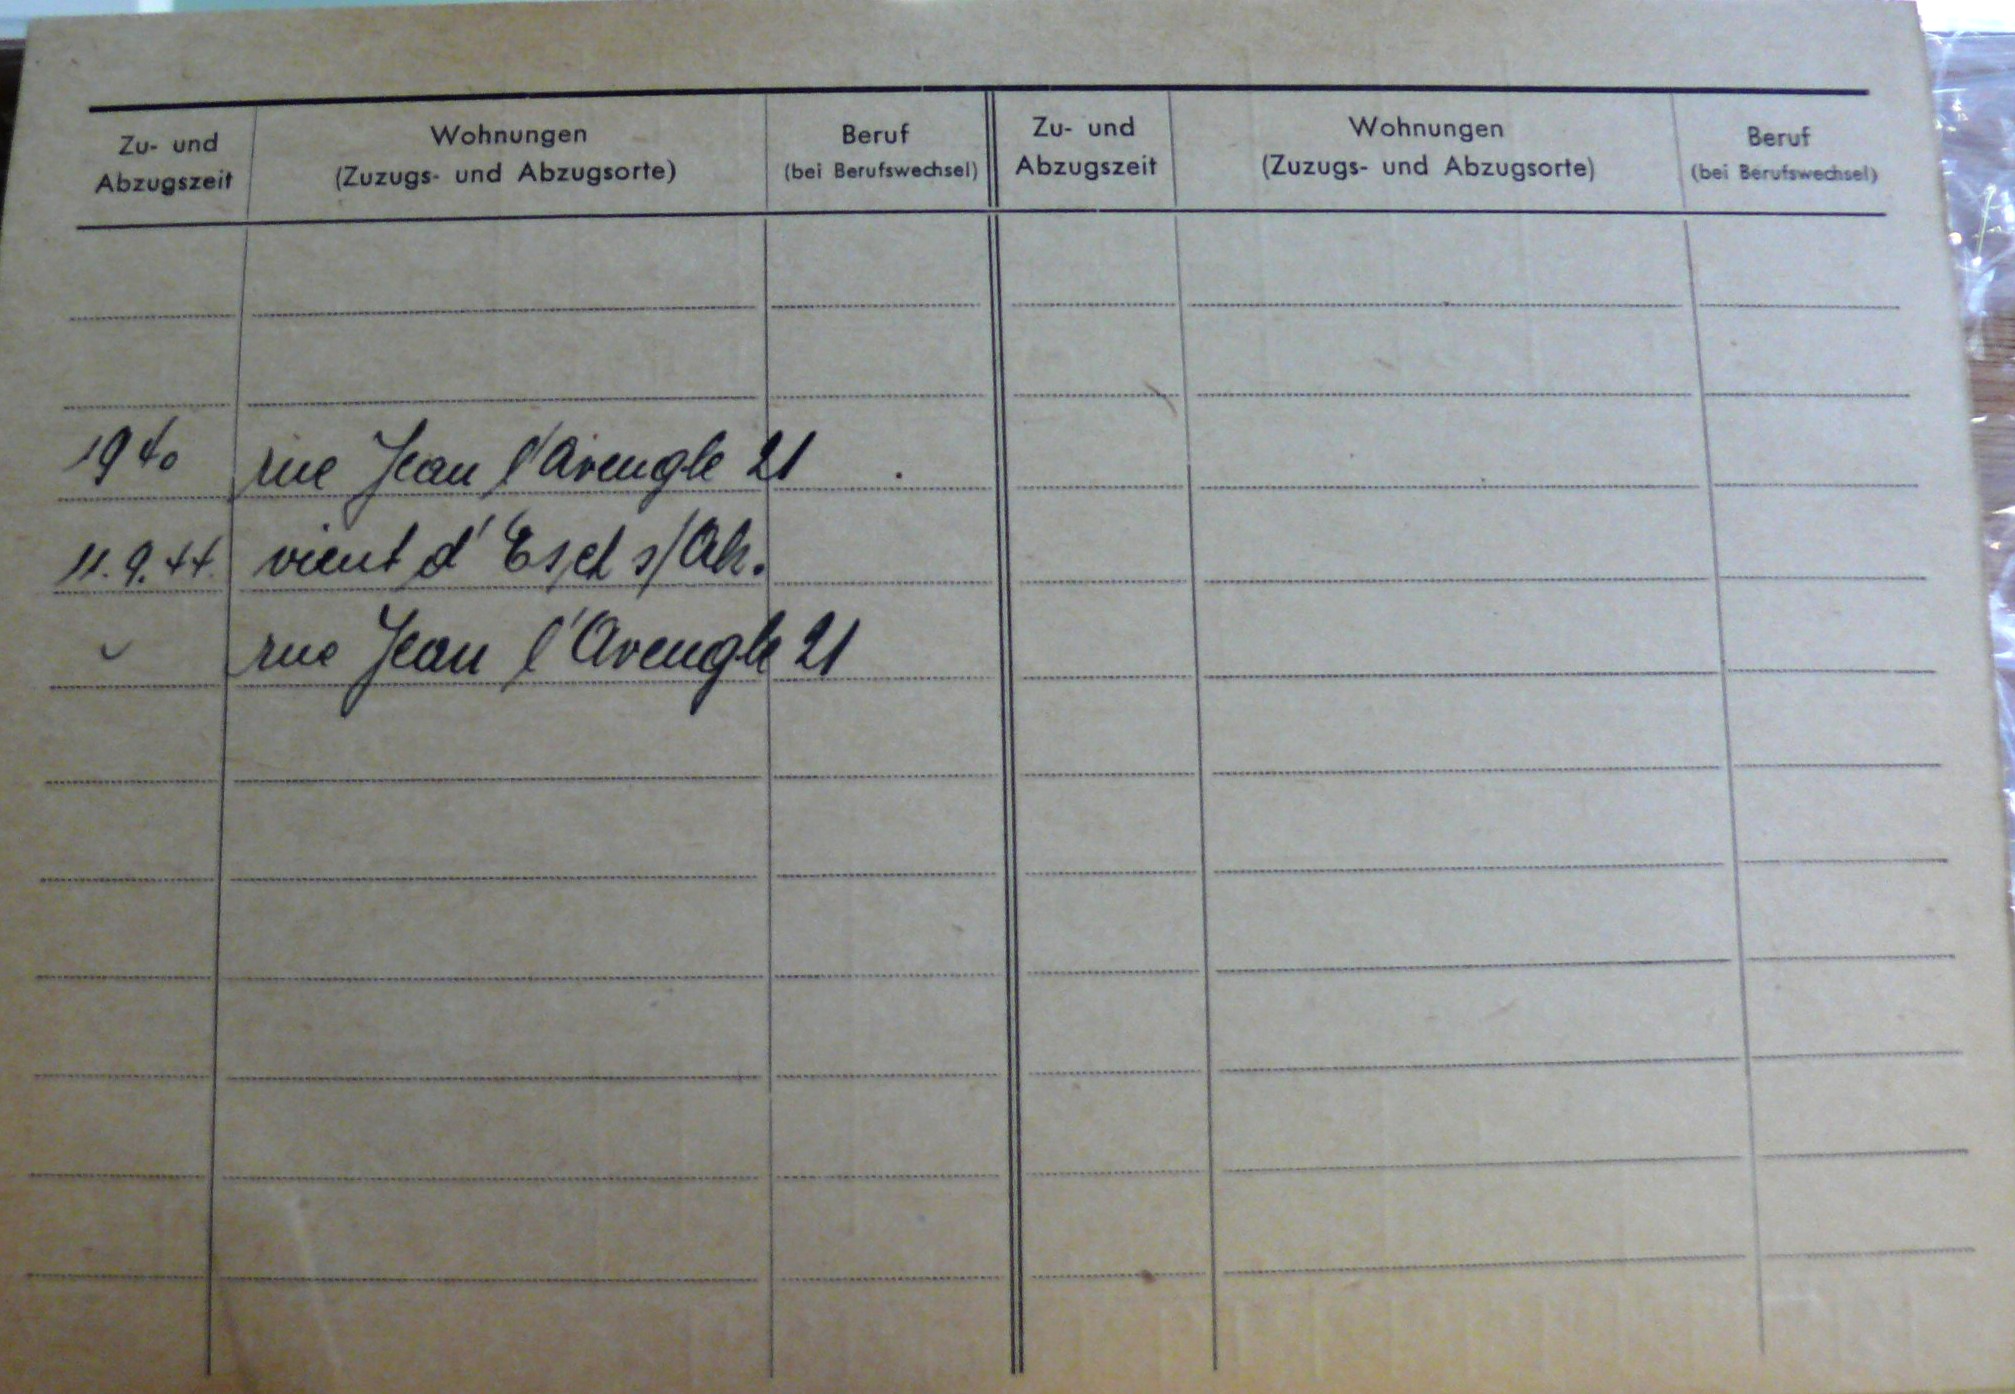 Zu- und Abzugszeit
Wohnungen
(Zuzugs- und Abzugsorte)
Beruf
(bei Berufswechsel)
Zu- und Abzugszeit
Wohnungen
(Zuzugs- und Abzugsorte)
Beruf
(bei Berufswechsel)
1940 rue Jean l'Aveugle 21
11.9.44. vient d'Esch s/Alz.
" rue Jean l'Aveugle 21